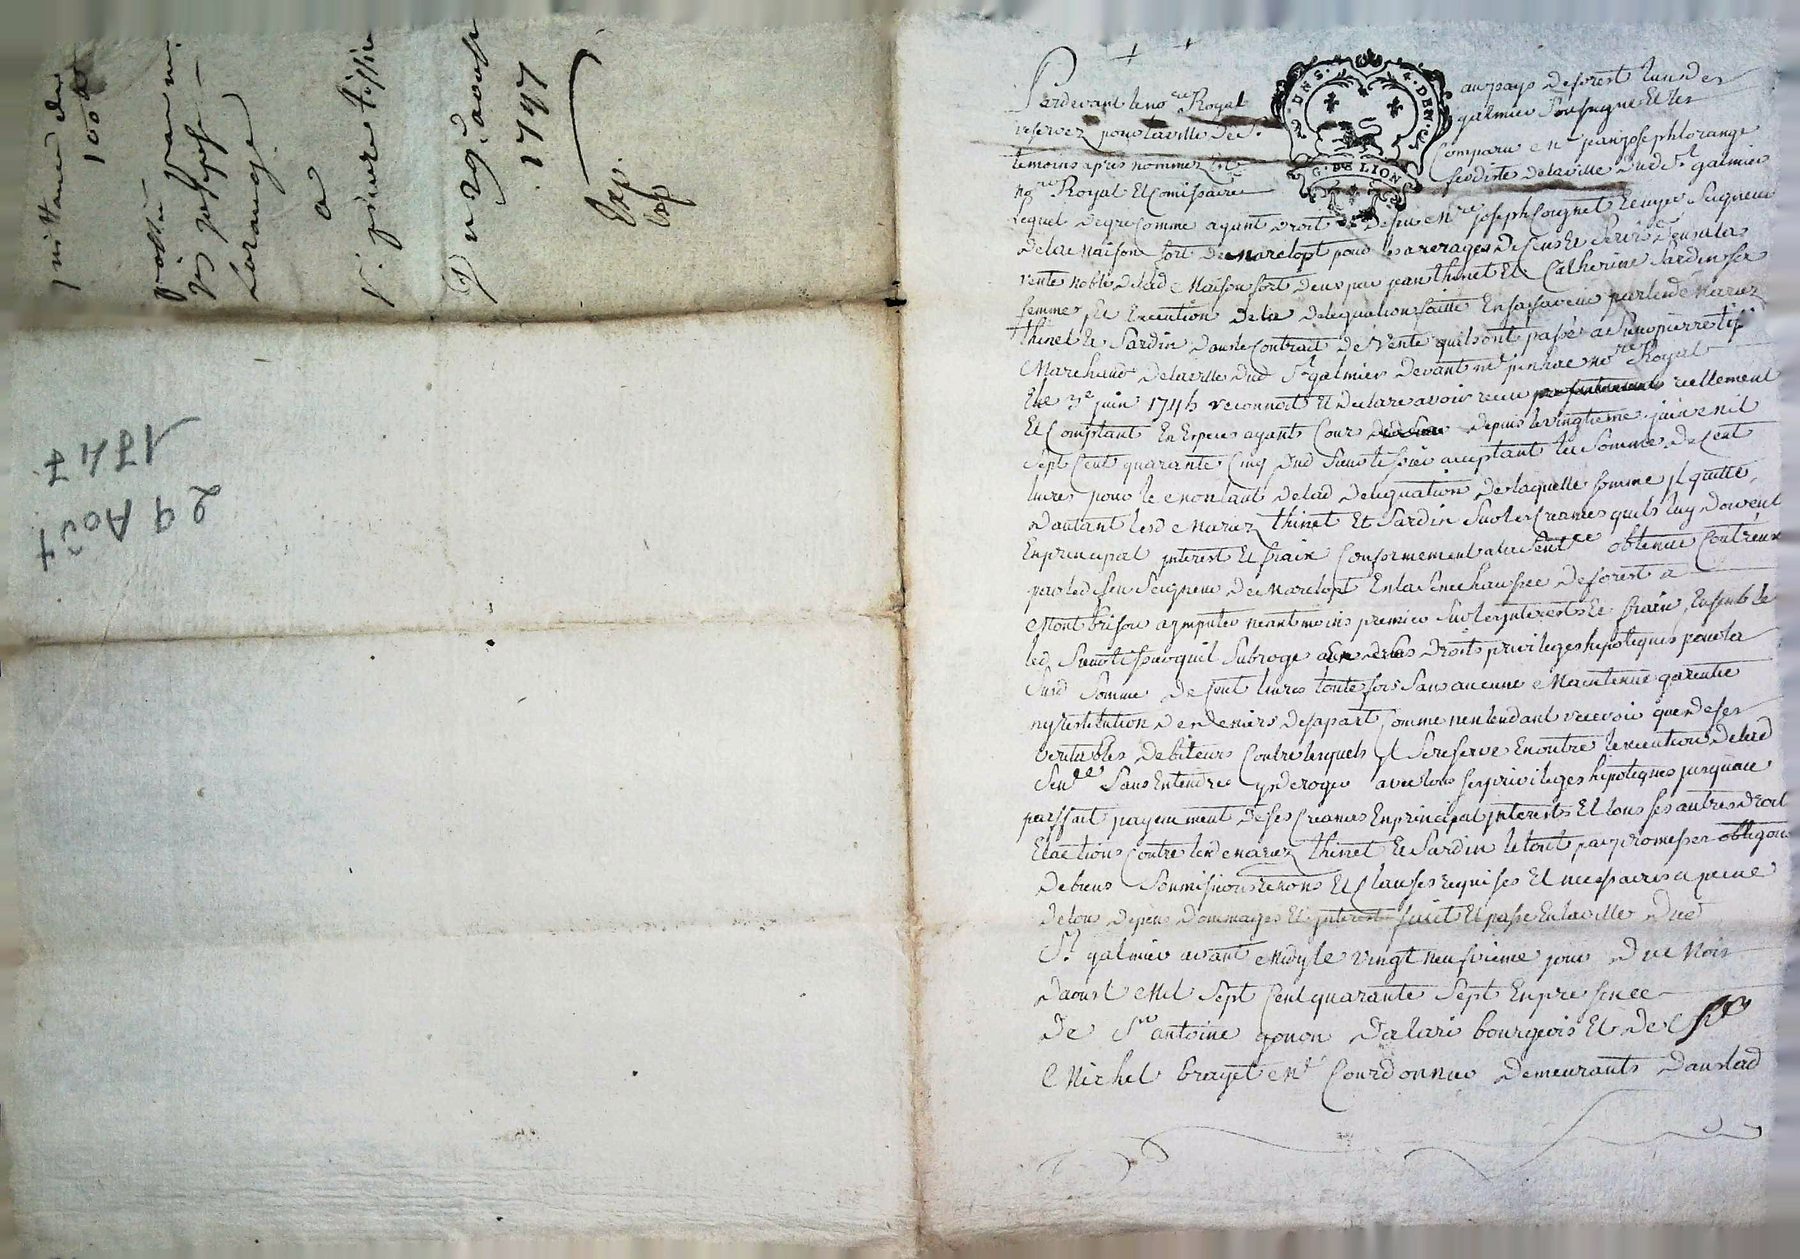 quittance de
100 ₶
passée par m.
jean joseph
Larange
a
S.r pierre tissier
Du 29.e aoust
1747
Exp.
29 Août
1747
DNS. 4. DEN.
G. DE LION
Pardevant le no.re Royal au pays de forest lun des
reservez pour la ville de S.t galmier soussigne et les
temoins apres nommez Comparu m.e jean joseph lorange
no.re Royal et Comissaire feodiste de la ville dud S.t galmier
lequel de gre comme ayant droit de feu m.re joseph Seigneur
de la Maison fort de Marclopt pour les arerages de cens et servis deus a la
rente noble de lad Maison fort deus par jean thinet et Catherine Sardin sa
femme, et Execution de la delegation faitte en sa faveur par lesd Mariez
thinet et Sardin dans le Contrait de vente quils ont passé a Sieur pierre
Marchand de la ville dud S.t galmier devant m.e no.re Royal
le 3.e juin 1745 reconnoit et declare avoir receu reellement
et Comptant en Especes ayant Cour depuis le vingtieme juin mil
sept Cent quarante Cinq dud Sieur tissier acceptant la Somme de Cent
livres pour le montant de lad delegation de laquelle somme jl quitte
dautant lesd Mariez thinet et Sardin sur les Creances quils luy doivent
en principal jnterest et fraix Conformement a la Sent.ce obtenue Contreux
par led feu Seigneur de Marclopt en la Senechaussee de forest a
Montbrison a jmputer neantmoins premier sur les jnterests et fraix, Ensemble
led Sieur tissier quil subroge droits privileges hipoteques pour la
susd Somme de Cent livres toute fois Sans aucune Maintenue garentie
ny restitution de deniers de sa part Comme nentendant recevoir que de ses
veritables debiteurs Contre lesquels jl se reserve En outre lexecution de lad
Sen.ce Sans Entendre y deroger avec tous ses privileges hipoteques jusquau
parffait payement de ses Creances en principal jnterests et tous ses autres droit
et actions Contre lesd Mariez thinet et Sardin le tout par promesses obligaons
de biens Soumissions renons et Clauses requises et necessaires a peine
de tous depens dommages et jnterests fait et passe en la ville dud
S.t galmier avant Midy le vingt neufvieme jour du Mois
daoust Mil Sept Cent quarante Sept en presence
de S.r antoine gonon dalari bourgeois et de S.r
Michel brayet M.e Courdonnier demeurants dans lad